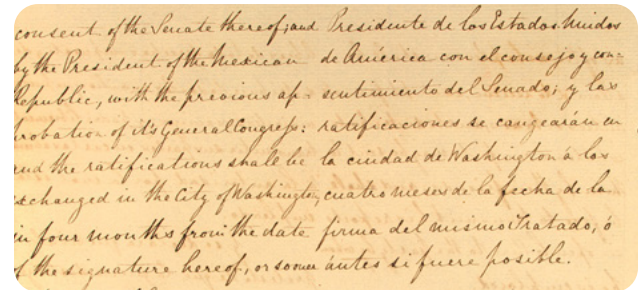 consent of the Senate thereof; and
by the President of the Mexican
Republic, with the previous ap-
probation of it's General Congress:
and the ratifications shall be
exchanged in the City of Washington,
in four months from the date
of the signature hereof, or sooner
Presidente de los Estados Unidos
de América con el consejo y con-
sentimiento del Senado; y las
ratificaciones se cangearán en
la ciudad de Washington á los
cuatro meses de la fecha de la
firma del mismo Tratado, ó
ántes si fuere posible.